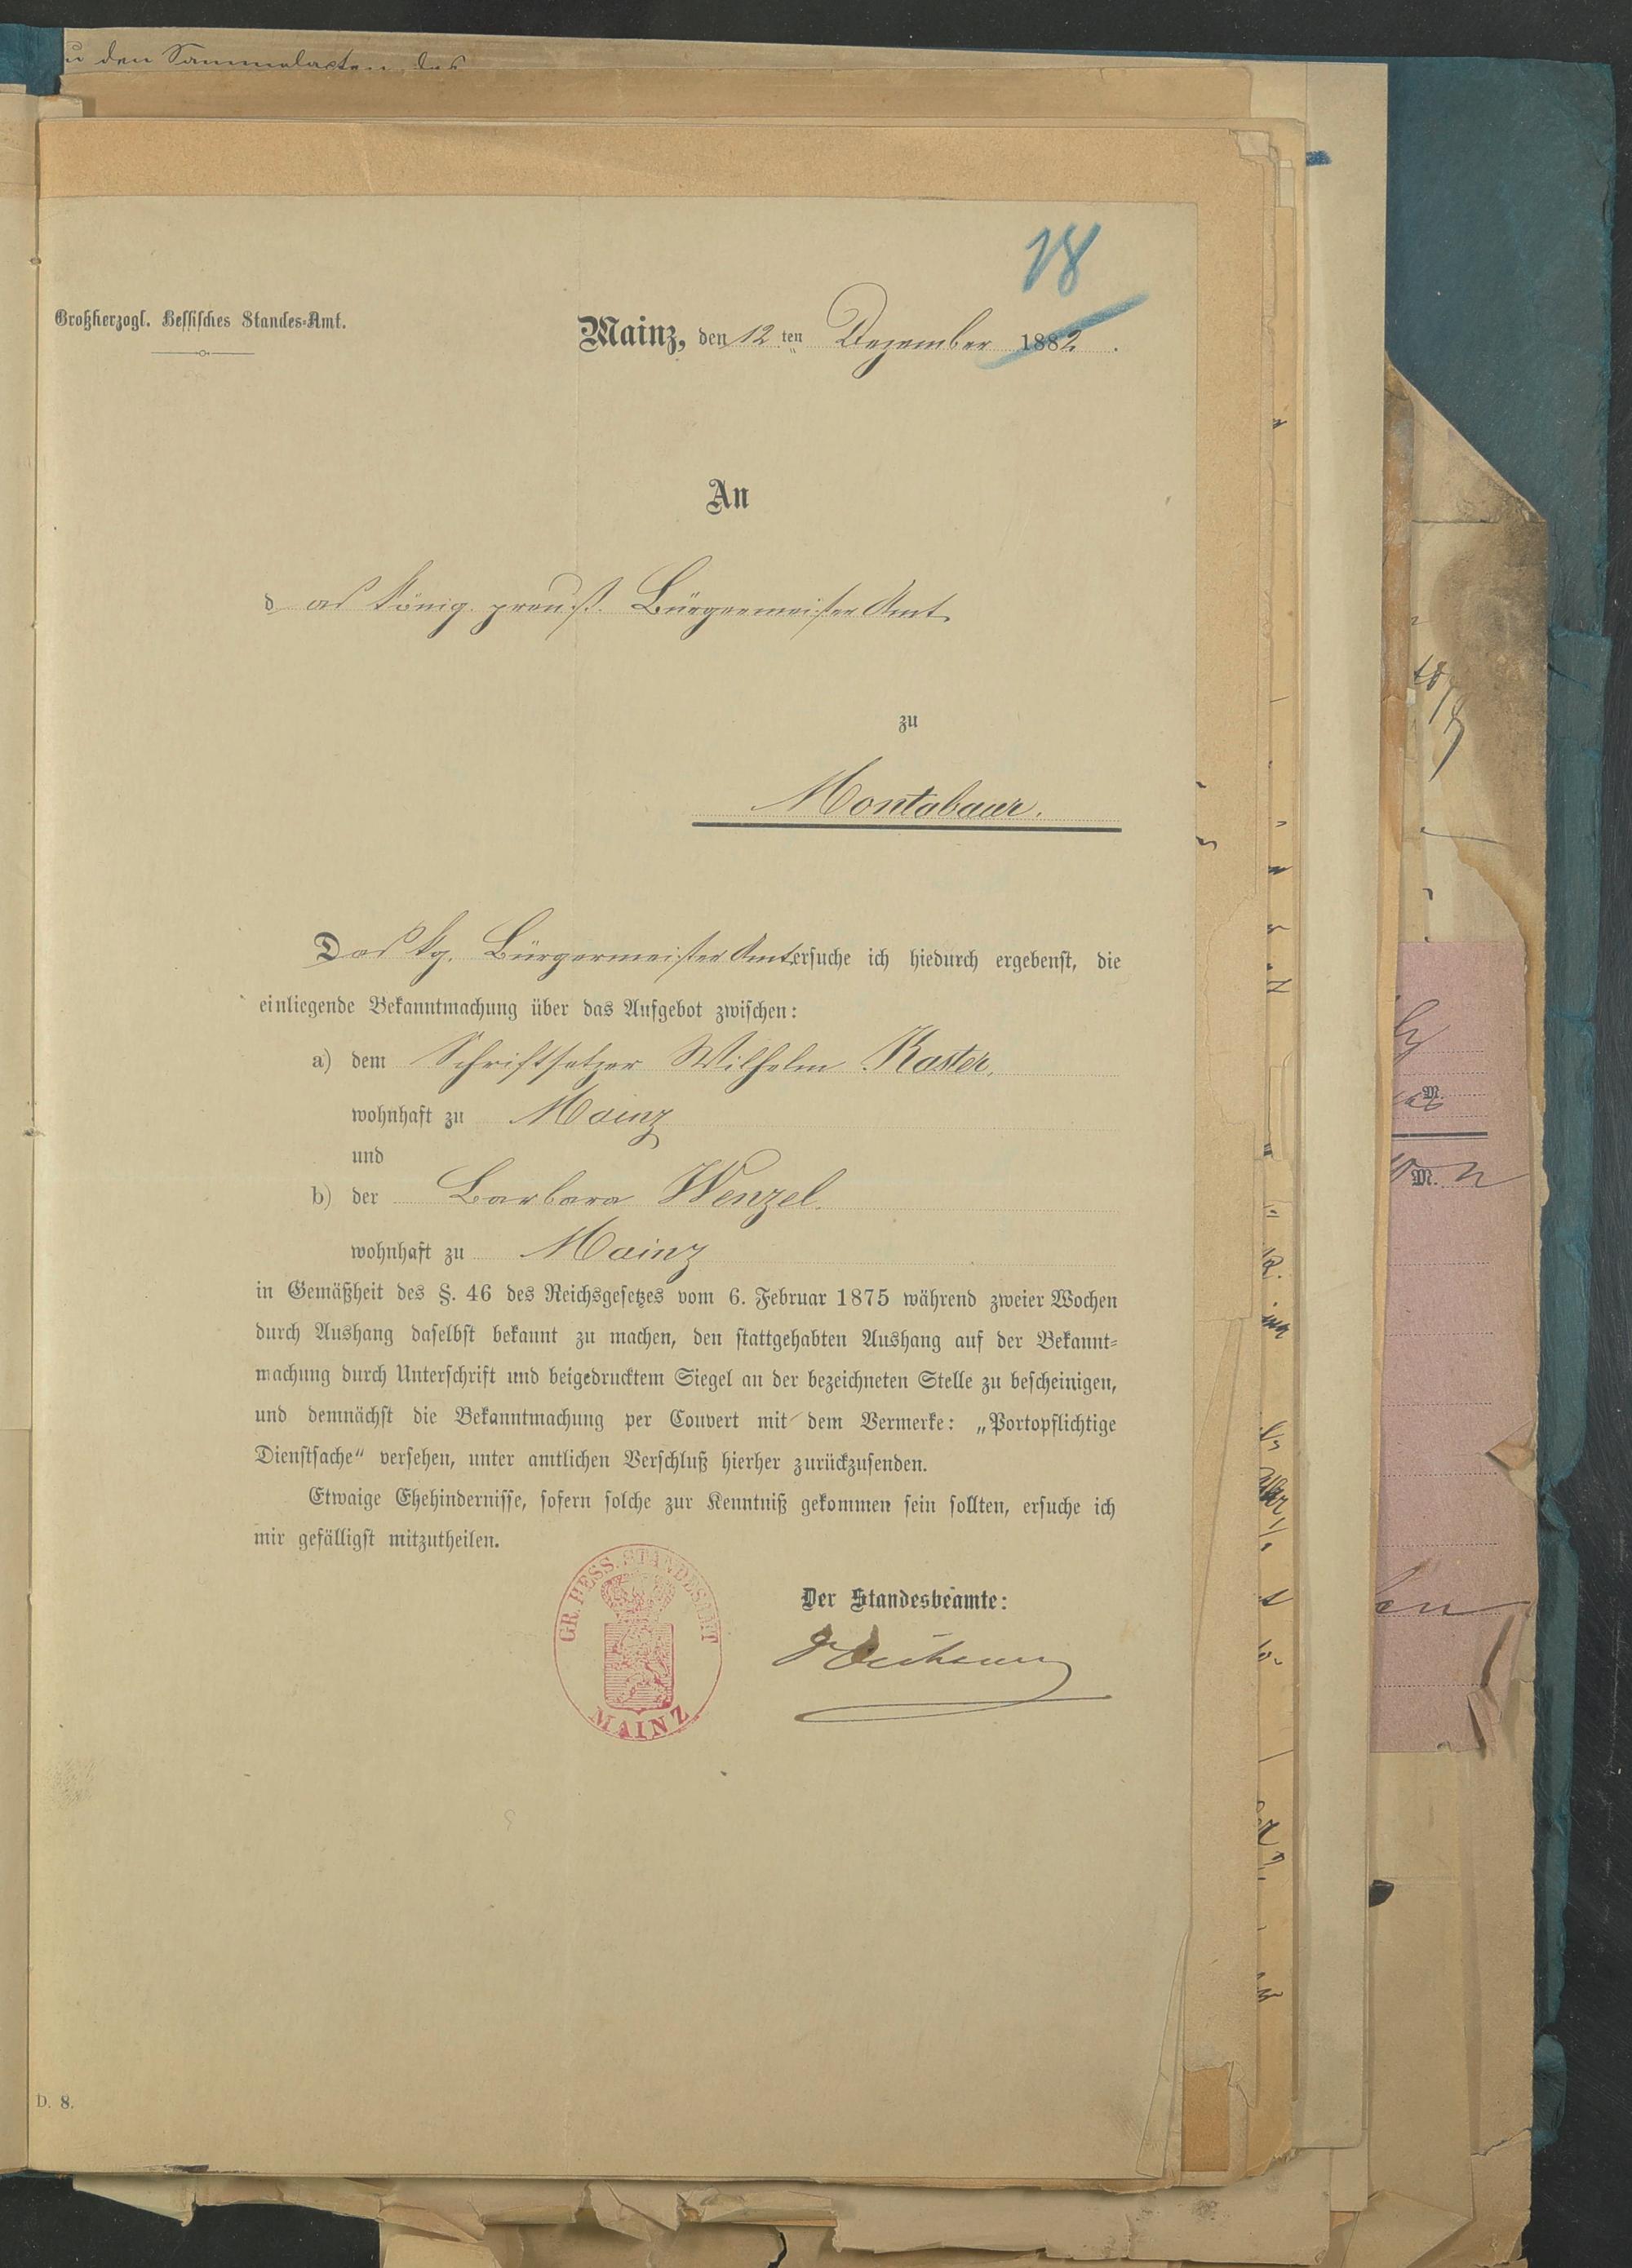 den Sammelacten des
18
Großherzogl. Hessisches Standes-Amt.
Mainz, den 12 ten Dezember 1882.
An
das König. preuß. Bürgermeister Amt
zu
Montabaur.
Das kg. Bürgermeister Amt ersuche ich hiedurch ergebenst, die
einliegende Bekanntmachung über das Aufgebot zwischen:
a) dem Schriftsetzer Wilhelm Kaster,
wohnhaft zu Mainz
und
b) der Barbara Wenzel.
wohnhaft zu Mainz
in Gemäßheit des §. 46 des Reichsgesetzes vom 6. Februar 1875 während zweier Wochen
durch Aushang daselbst bekannt zu machen, den stattgehabten Aushang auf der Bekannt-
machung durch Unterschrift und beigedrucktem Siegel an der bezeichneten Stelle zu bescheinigen,
und demnächst die Bekanntmachung per Couvert mit dem Vermerke: „Portopflichtige
Dienstsache“ versehen, unter amtlichen Verschluß hierher zurückzusenden.
Etwaige Ehehindernisse, sofern solche zur Kenntniß gekommen sein sollten, ersuche ich
mir gefälligst mitzutheilen.
GR. HESS. STANDESAMT
MAINZ
Der Standesbeamte:
D. 8.
M.
M.